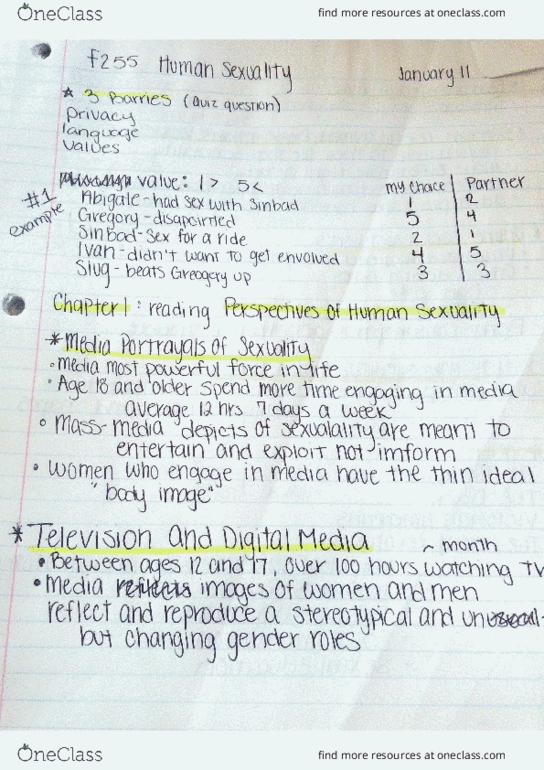 OneClass find more resources at oneclass.com
F255 Human Sexuality January 11
* 3 Barries (Quiz question)
Privacy
language
Values
value: 1> 5< my choice Partner
#1 example
Abigale - had sex with Sinbad 1 2
Gregory - disapointed 5 4
Sinbad - Sex for a ride 2 1
Ivan - didn't want to get envolved 4 5
Slug - beats Greogery up 3 3
Chapter 1: reading Perspectives of Human Sexuality
* Media Portrayals of Sexuality
• Media most powerful force in life
• Age 18 and older spend more time engoging in media
average 12 hrs 7 days a week
• Mass-media depicts of sexualality are meant to
entertain and exploit not imform
• Women who engage in media have the thin ideal
"body image"
* Television and Digital Media
~ month
• Between ages 12 and 17, over 100 hours watching TV
• Media reflects images of women and men
reflect and reproduce a stereotypical and
but changing gender roles
OneClass find more resources at oneclass.com